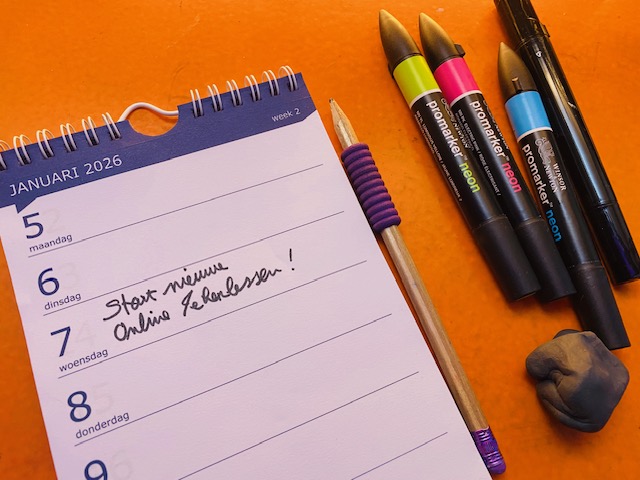 JANUARI 2026
week 2
5
maandag
6
dinsdag
Start nieuwe
Online Tekenlessen!
7
woensdag
8
donderdag
9
promarker™ neon
WINSOR & NEWTON
promarker™ neon
promarker™ neon
WINSOR & NEWTON